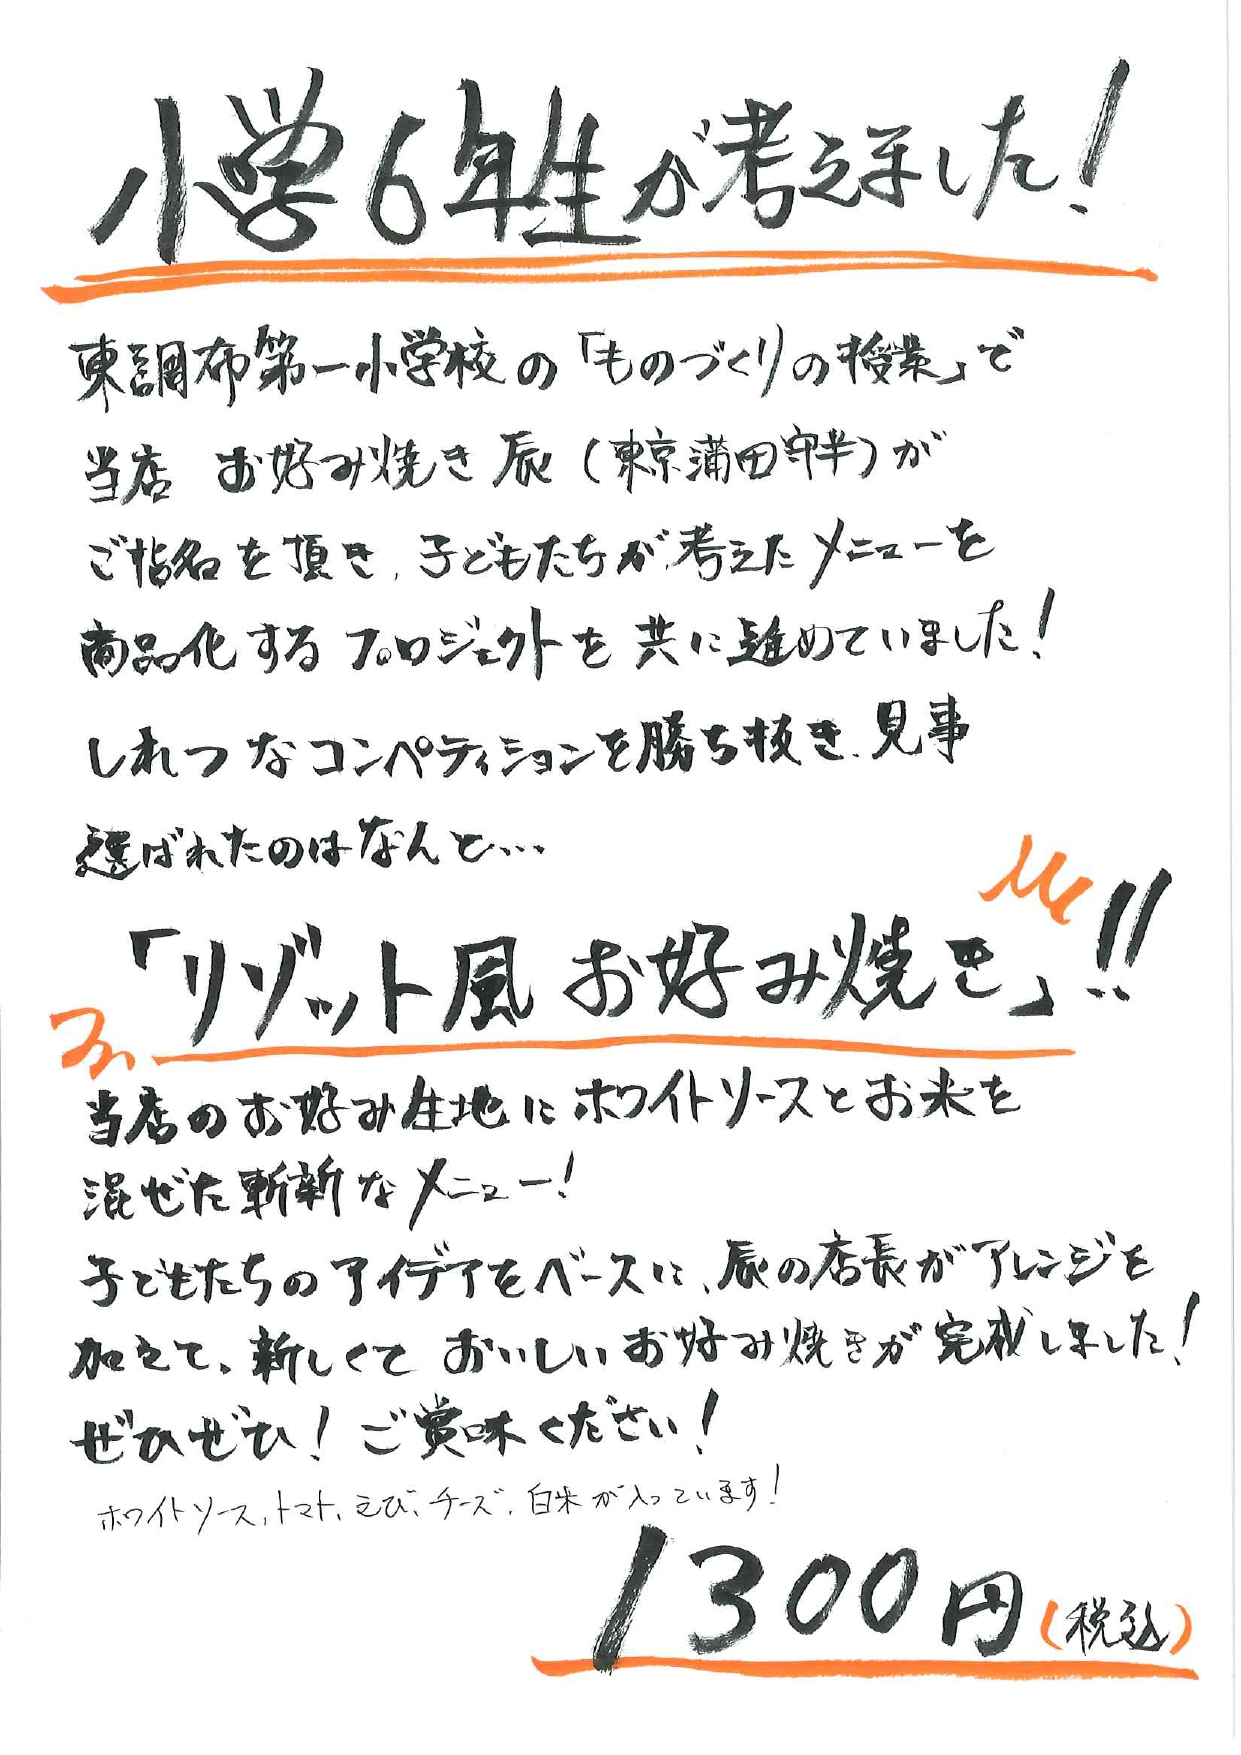 小学6年生が考えました!
東調布第一小学校の「ものづくりの授業」で
当店 お好み焼き 辰(東京蒲田守半)が
ご指名を頂き、子どもたちが考えたメニューを
商品化するプロジェクトを共に進めていました!
しれつなコンペティションを勝ち抜き、見事
選ばれたのはなんと…
「リゾット風 お好み焼き」!!
当店のお好み生地にホワイトソースとお米を
混ぜた斬新なメニュー!
子どもたちのアイデアをベースに、辰の店長がアレンジを
加えて、新しくて おいしいお好み焼きが完成しました!
ぜひぜひ!ご賞味ください!
ホワイトソース、トマト、えび、チーズ、白米が入っています!
1300円(税込)